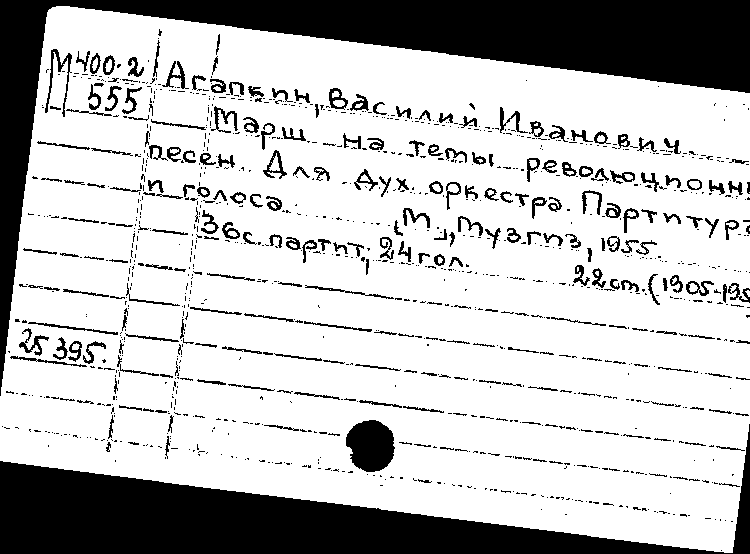 М400.2
555
Агапкин, Василий Иванович.
Марш на темы революционн
песен. Для дух оркестра. Партитура
и голоса [М.], Музгиз, 1955.
36с. партит; 24 гол. 22 cm. (1905-195
25395.